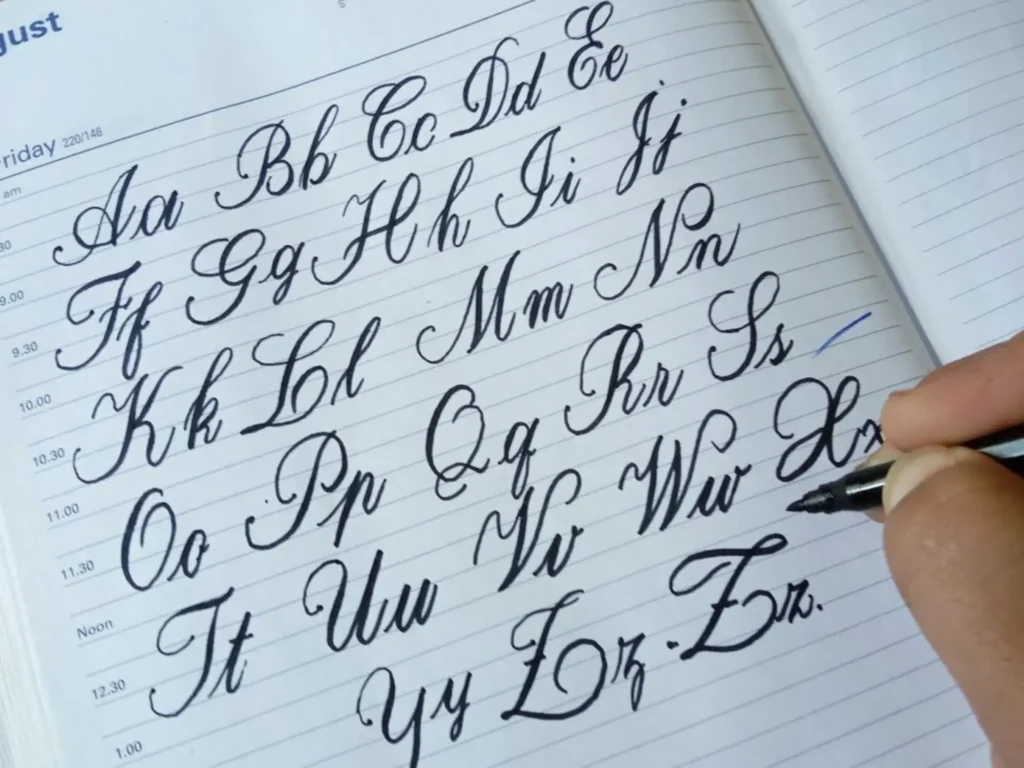 gust
Friday 220/146
am
30
9.00
9.30
10.00
10.30
11.00
11.30
Noon
12.30
1.00
Aa Bb Cc Dd Ee
Ff Gg Hh Ii Jj
Kk Ll Mm Nn
Oo Pp Qq Rr Ss
Tt Uu Vv Ww Xx
Yy Zz . Zz.